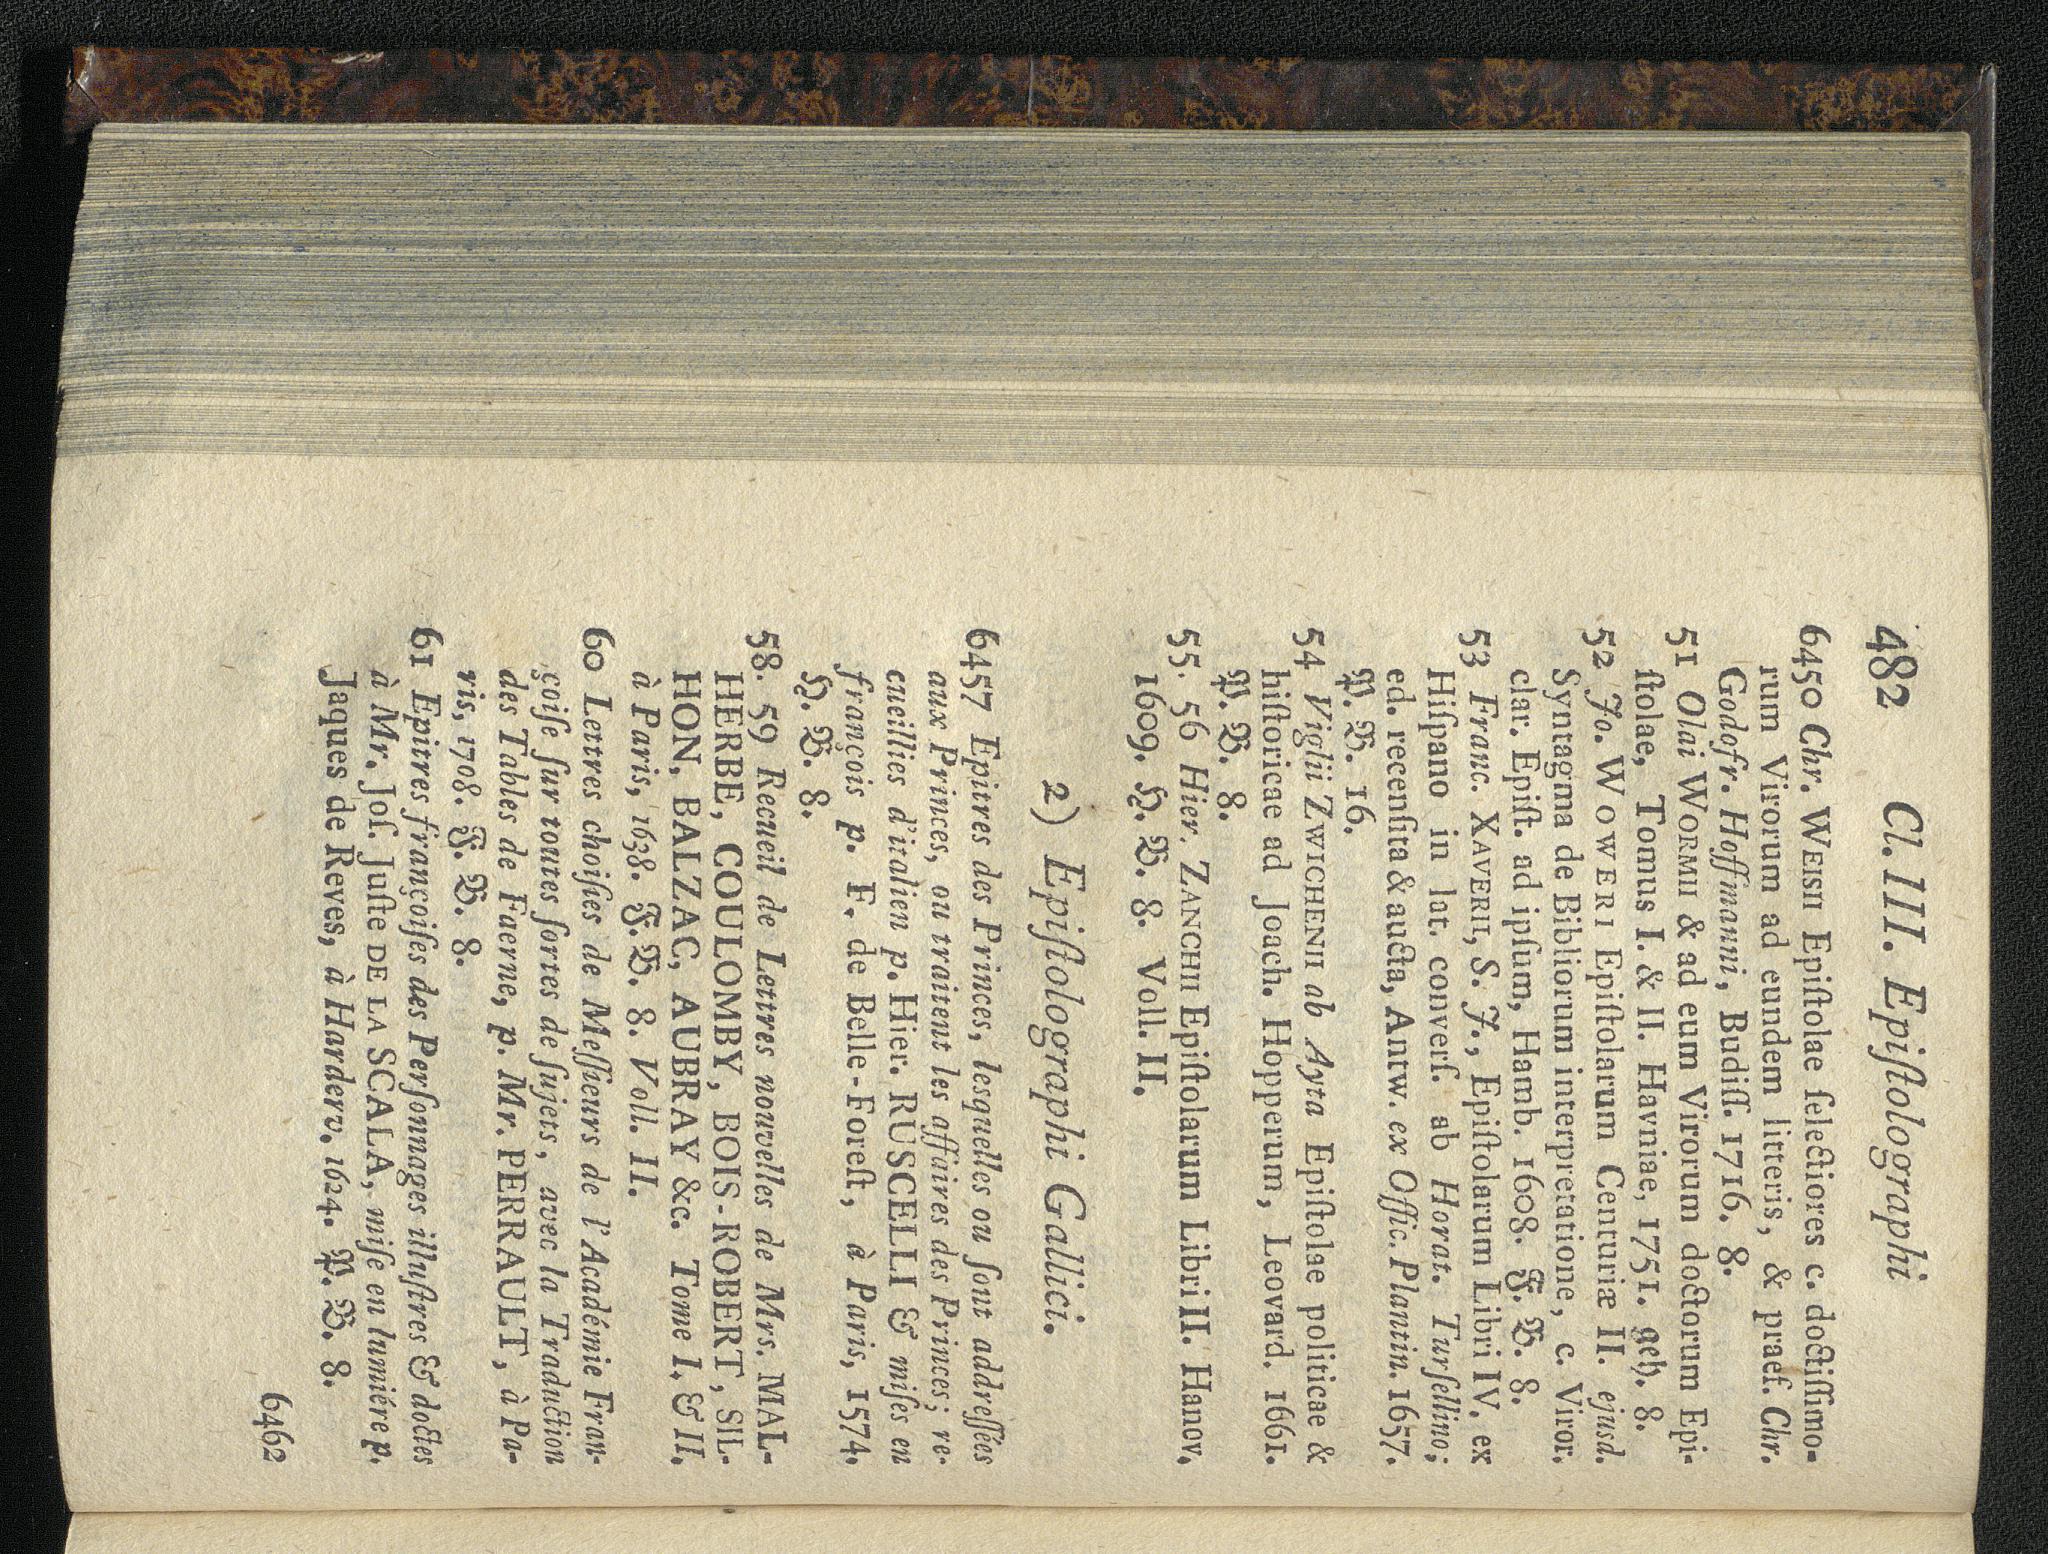 482 Cl. III. Epiſtolographi
6450 Chr. WEISII Epiſtolae ſelectiores c. doctiſſimo-
rum Virorum ad eundem litteris, & praef. Chr.
Godofr. Hoffmanni, Budiſſ. 1716. 8.
51 Olai WORMII & ad eum Virorum doctorum Epi-
ſtolae, Tomus I. & II. Havniae, 1751. geh. 8.
52 Jo. WOWERI Epiſtolarum Centuriæ II. ejusd.
Syntagma de Bibliorum interpretatione, c. Viror.
clar. Epiſt. ad ipſum, Hamb. 1608. F. B. 8.
53 Franc. XAVERII, S. J., Epiſtolarum Libri IV. ex
Hiſpano in lat. converſ. ab Horat. Turſellino;
ed. recenſita & aucta, Antw. ex Offic. Plantin. 1657.
P. B. 16.
54 Viglii ZWICHENII ab Ayta Epiſtolae politicae &
hiſtoricae ad Joach. Hopperum, Leovard. 1661.
P. B. 8.
55. 56 Hier. ZANCHII Epiſtolarum Libri II. Hanov.
1609. H. B. 8. Voll. II.
2) Epiſtolographi Gallici.
6457 Epitres des Princes, lesquelles ou ſont addreſſées
aux Princes, ou traitent les affaires des Princes; re-
cueillies d'italien p. Hier. RUSCELLI & miſes en
françois p. F. de Belle-Foreſt, à Paris, 1574.
H. B. 8.
58. 59 Recueil de Lettres nouvelles de Mrs. MAL-
HERBE, COULOMBY, BOIS-ROBERT, SIL-
HON, BALZAC, AUBRAY &c. Tome I. & II.
à Paris, 1638. F. B. 8. Voll. II.
60 Lettres choiſies de Meſſieurs de l'Académie Fran-
çoiſe ſur toutes ſortes de ſujets, avec la Traduction
des Tables de Faerne, p. Mr. PERRAULT, à Pa-
ris, 1708. F. B. 8.
61 Epitres françoiſes des Perſonnages illuſtres & doctes
à Mr. Joſ. Juſte DE LA SCALA, miſe en lumiére p.
Jaques de Reves, à Harderv. 1624. P. B. 8.
6462